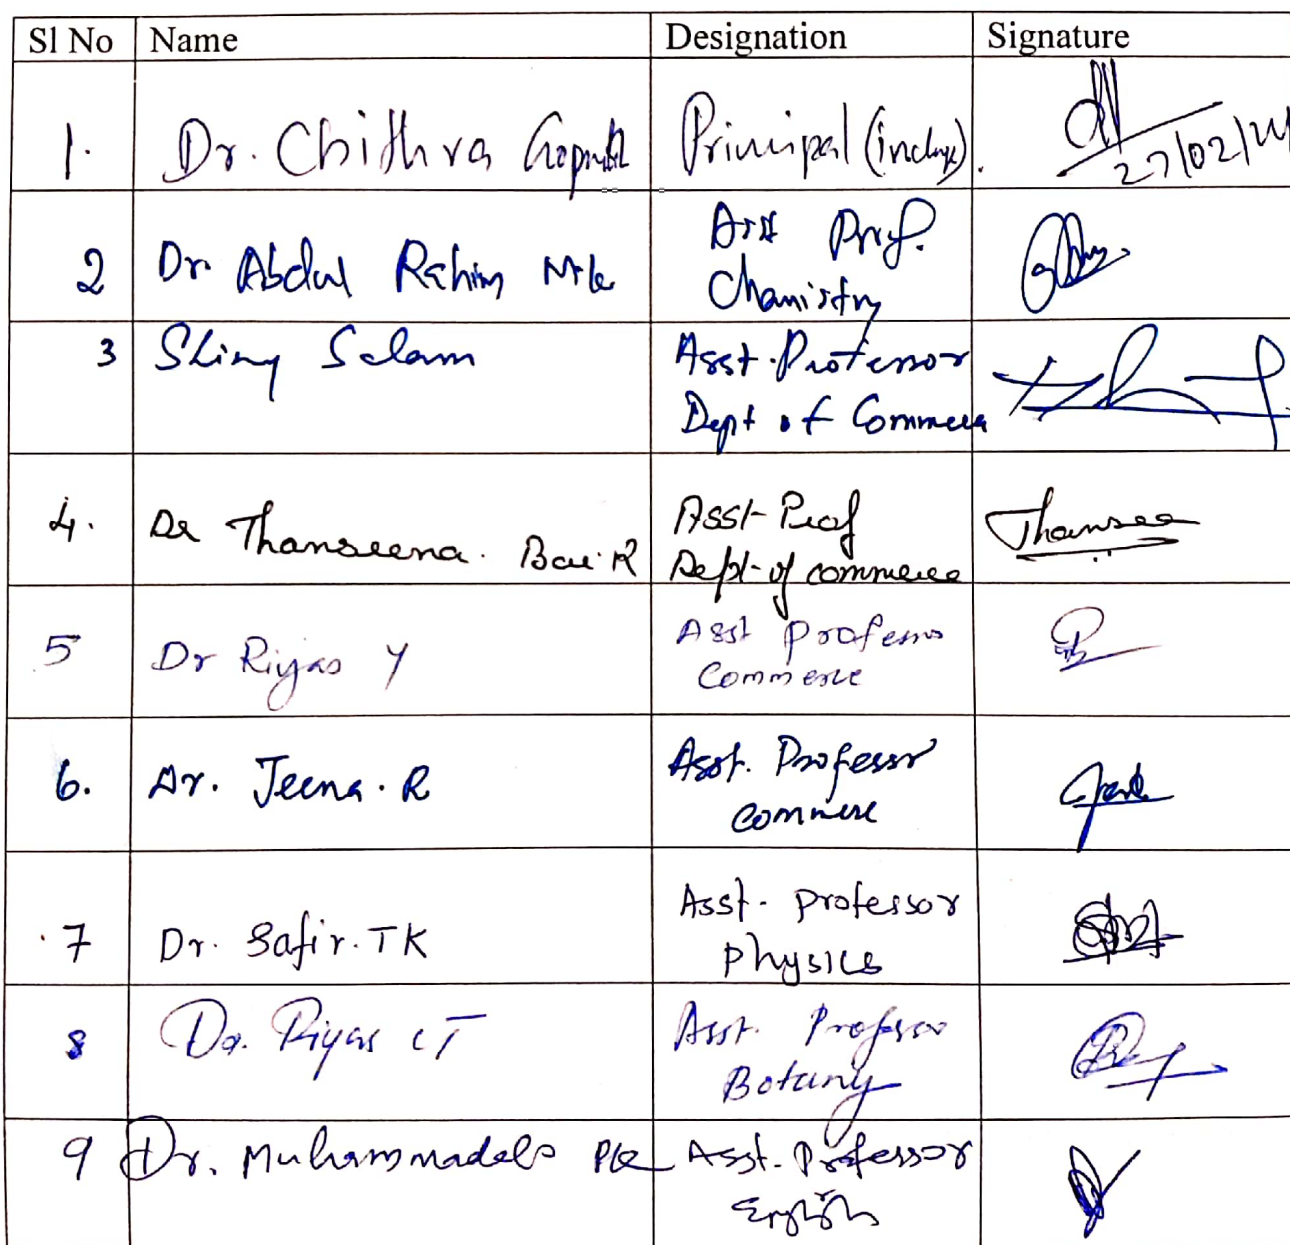 Sl No Name Designation Signature
1. Dr. Chithra Principal (incharge). 27/02/24
2 Dr. Abdul Rahim M.K Asst Prof.
Chamistry
3 Shiny Salam Asst. Professor
Dept of Commerce
4. Dr Thanseena. Bai. R Asst Prof Thansee
Dept of commerce
5 Dr Riyas Y Asst Professor
Commerce
6. Dr. Jeena. R Asst. Professor
Commerce
7 Dr. Safir. TK Asst. professor
physics
8 Dr. Riyas CT Asst. Professor
Botany
9 Dr. Muhammadali PK Asst. Professor
English